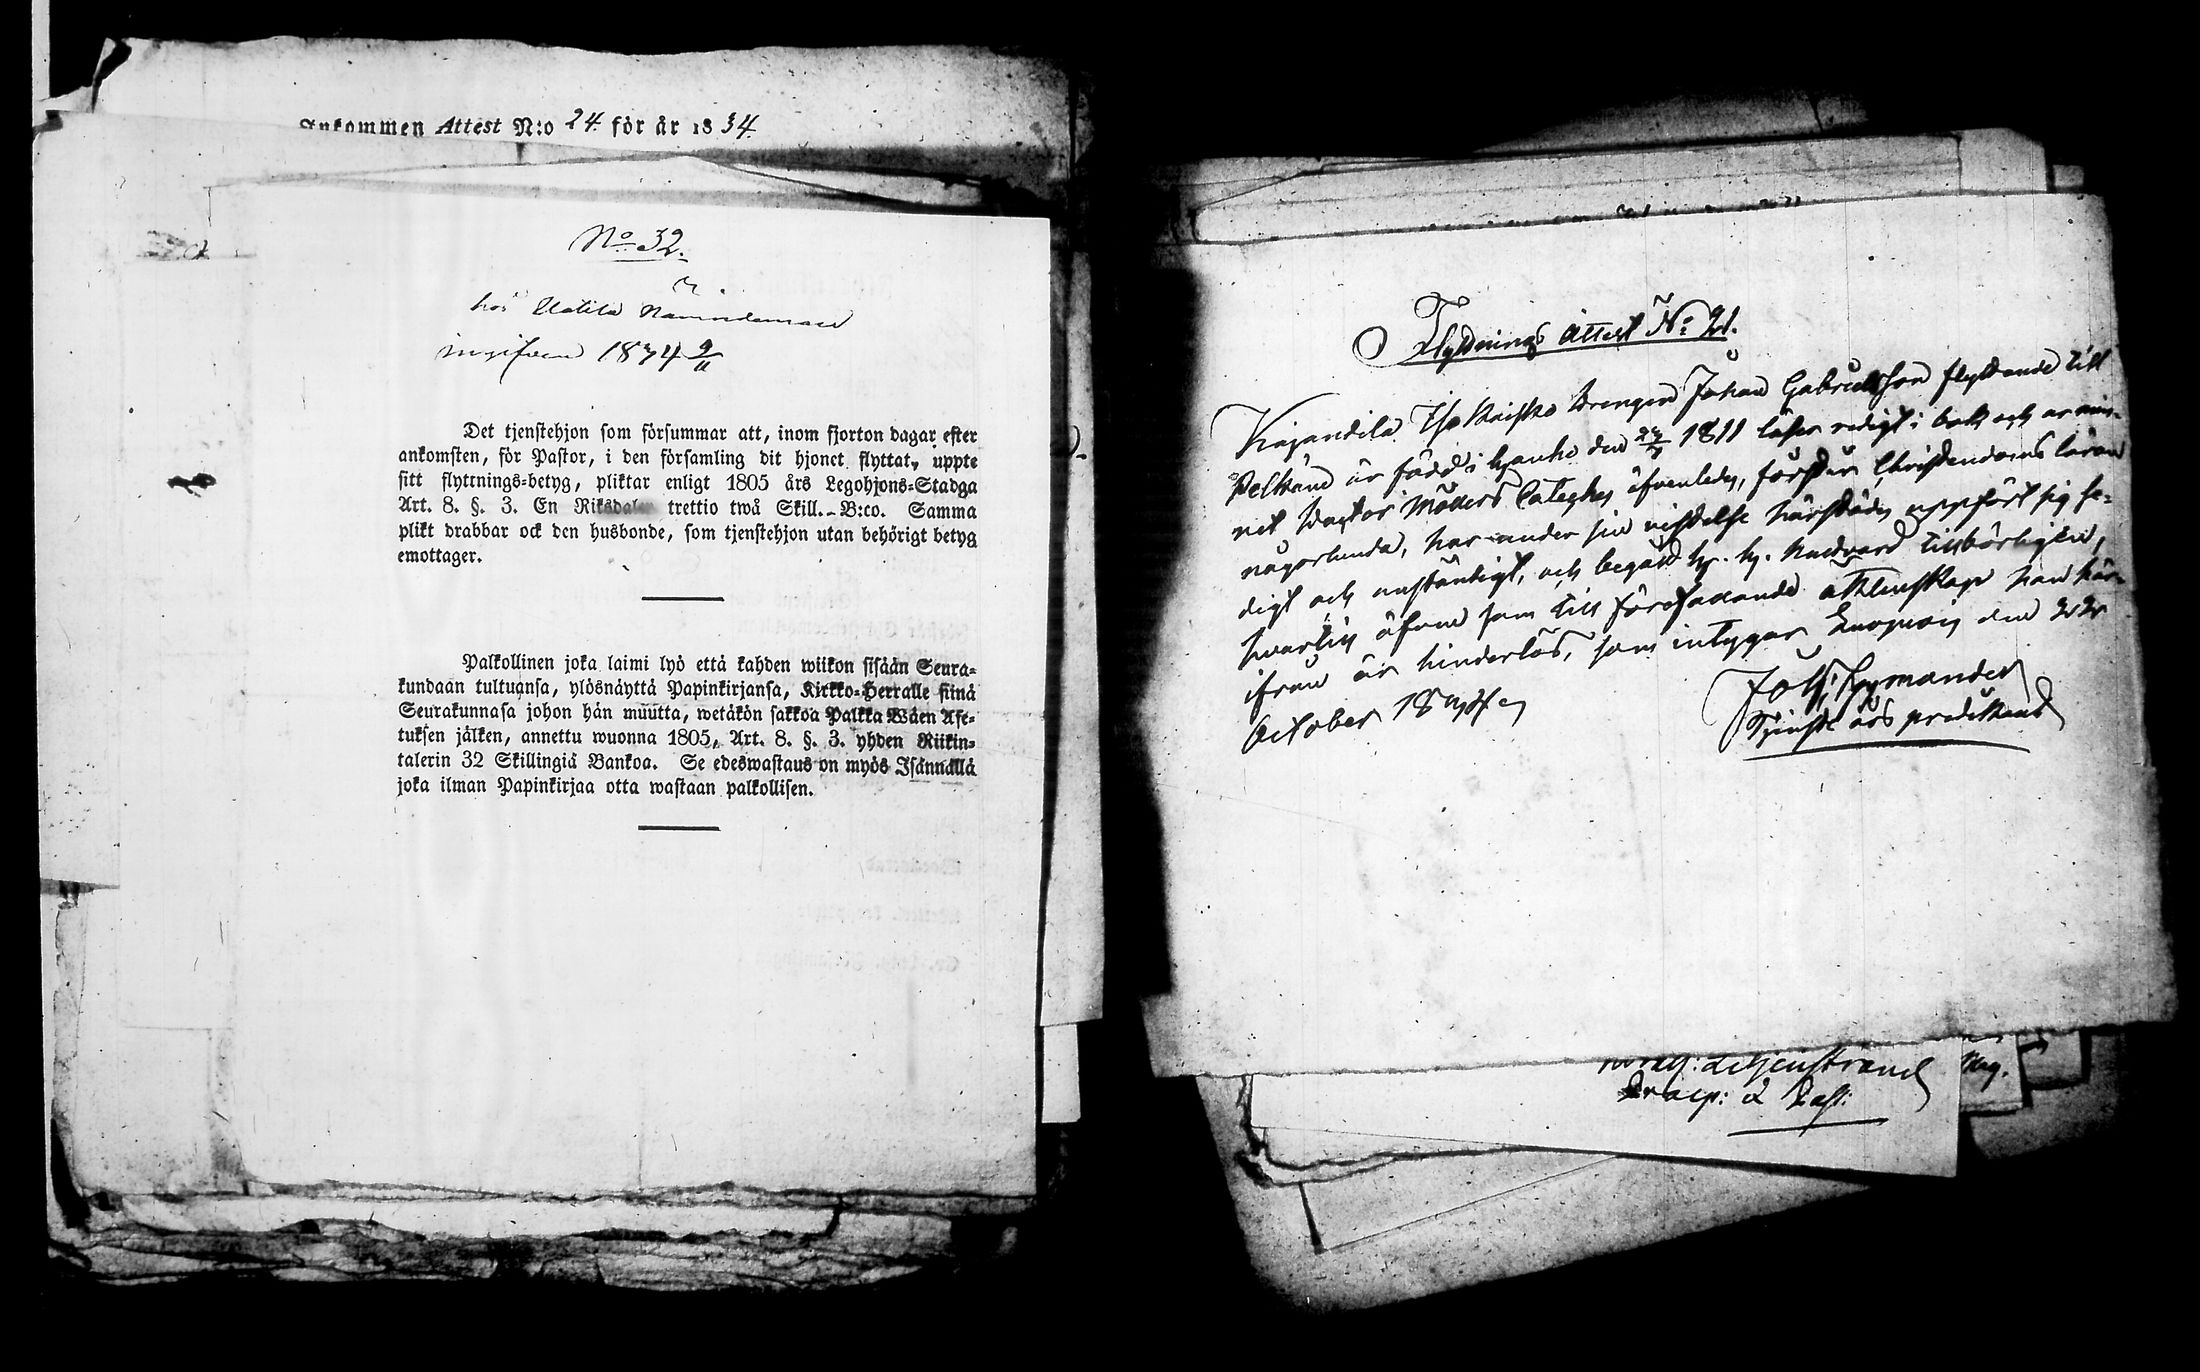 Ankommen Attest N:o 24. för år 1834.
No 32.
hos Uotila Nämndeman
ingifven 1834 9/11
Det tjenstehjon som försummar att, inom fjorton dagar efter
ankomsten, för Pastor, i den församling dit hjonet flyttat, uppte
sitt flyttnings=betyg, pliktar enligt 1805 års Legohjons=Stadga
Art. 8. §. 3. En Riksdaler trettio twå Skill. B:co. Samma
plikt drabbar ock den husbonde, som tjenstehjon utan behörigt betyg
emottager.
Palkollinen joka laimi lyö että kahden wiikon sisään Seura=
kundaan tultuansa, ylösnäyttä Papinkirjansa, Kirkko=Herralle siinä
Seurakunnasa johon hän muutta, wetäkön sakkoa Palkka Wäen Ase=
tuksen jälken, annettu wuonna 1805, Art. 8. §. 3. yhden Riikin=
talerin 32 Skillingiä Bankoa. Se edeswastaus on myös Isännällä
joka ilman Papinkirjaa otta wastaan palkollisen.
Flyttnings Attest No 21.
Drengen Johan Gabrielsson flyttande till
Pelkäne är född i den 1811 läser redigt i bok och av
Cateches äfvenledes, förstår Christendoms läran
någorlunda, har under sin vistelse härstädes uppfört sig se=
digt och anständigt, och begådt h. h. Nattvard tillbörligen,
hvarvid äfven som till förefallande äktenskap han här=
ifrån är hinderlös, som intygar den
October 1834
predikant
Liljenstrand